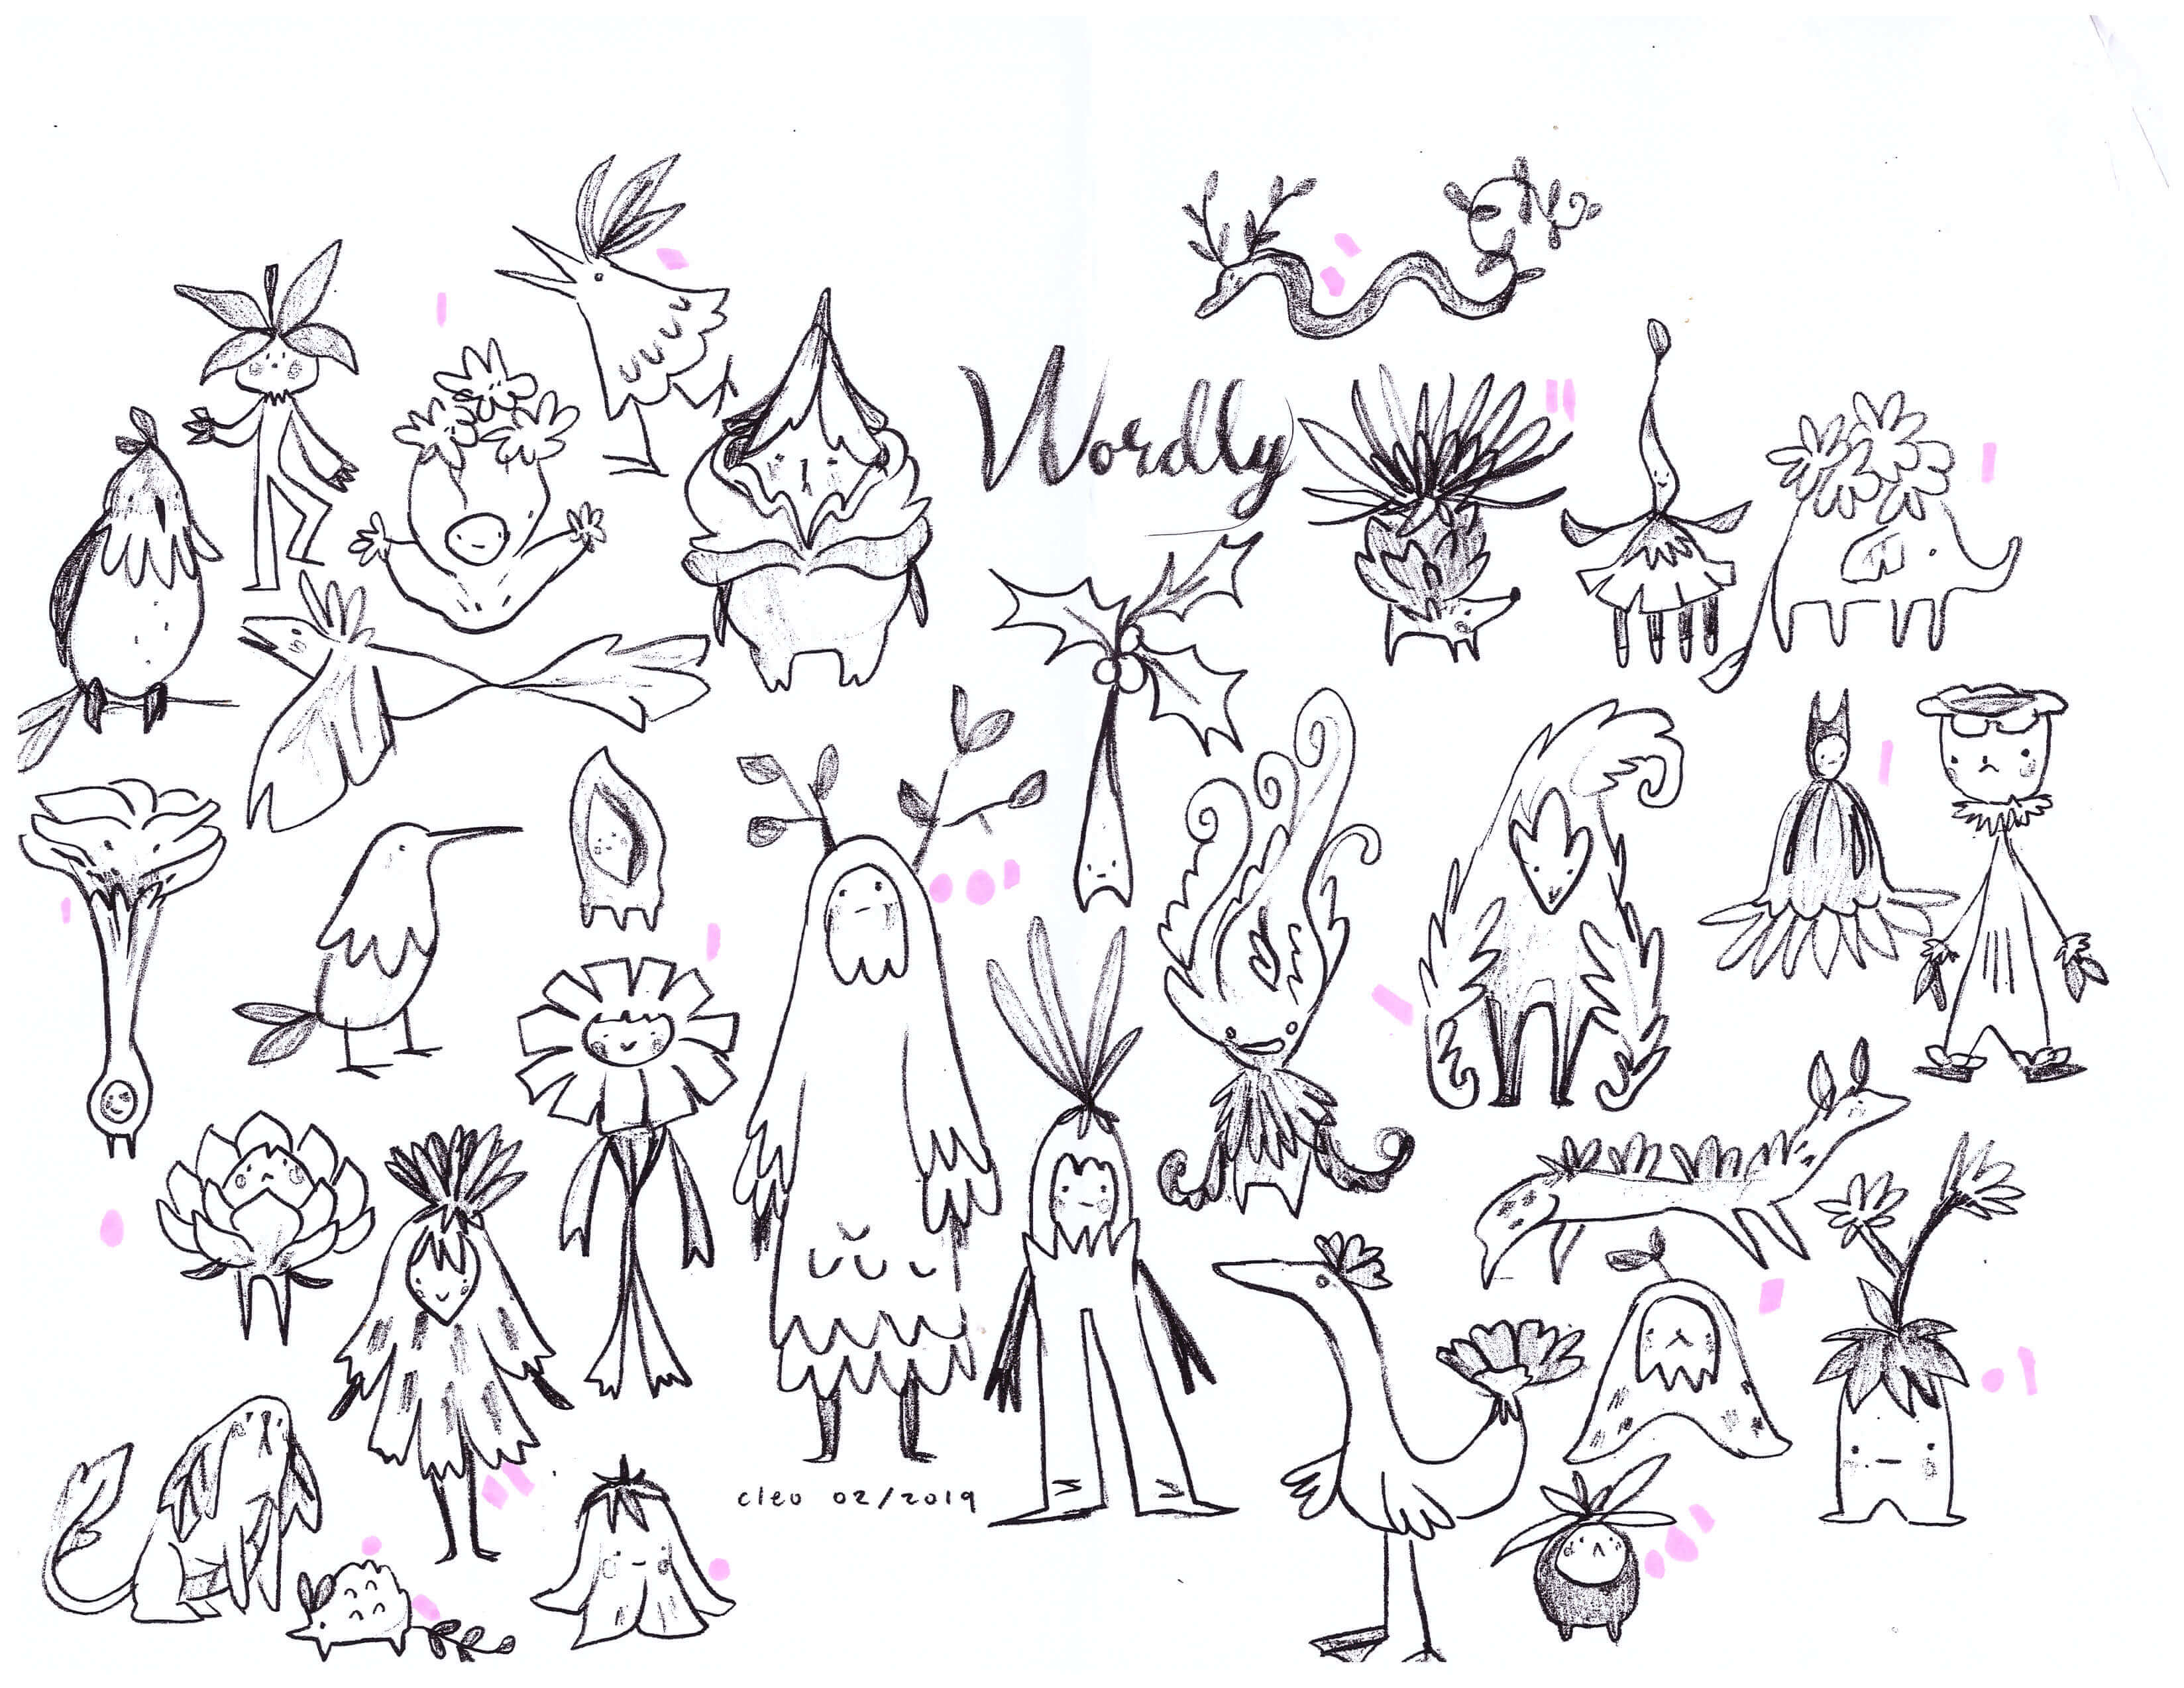 Wordly
cleo 02/2019